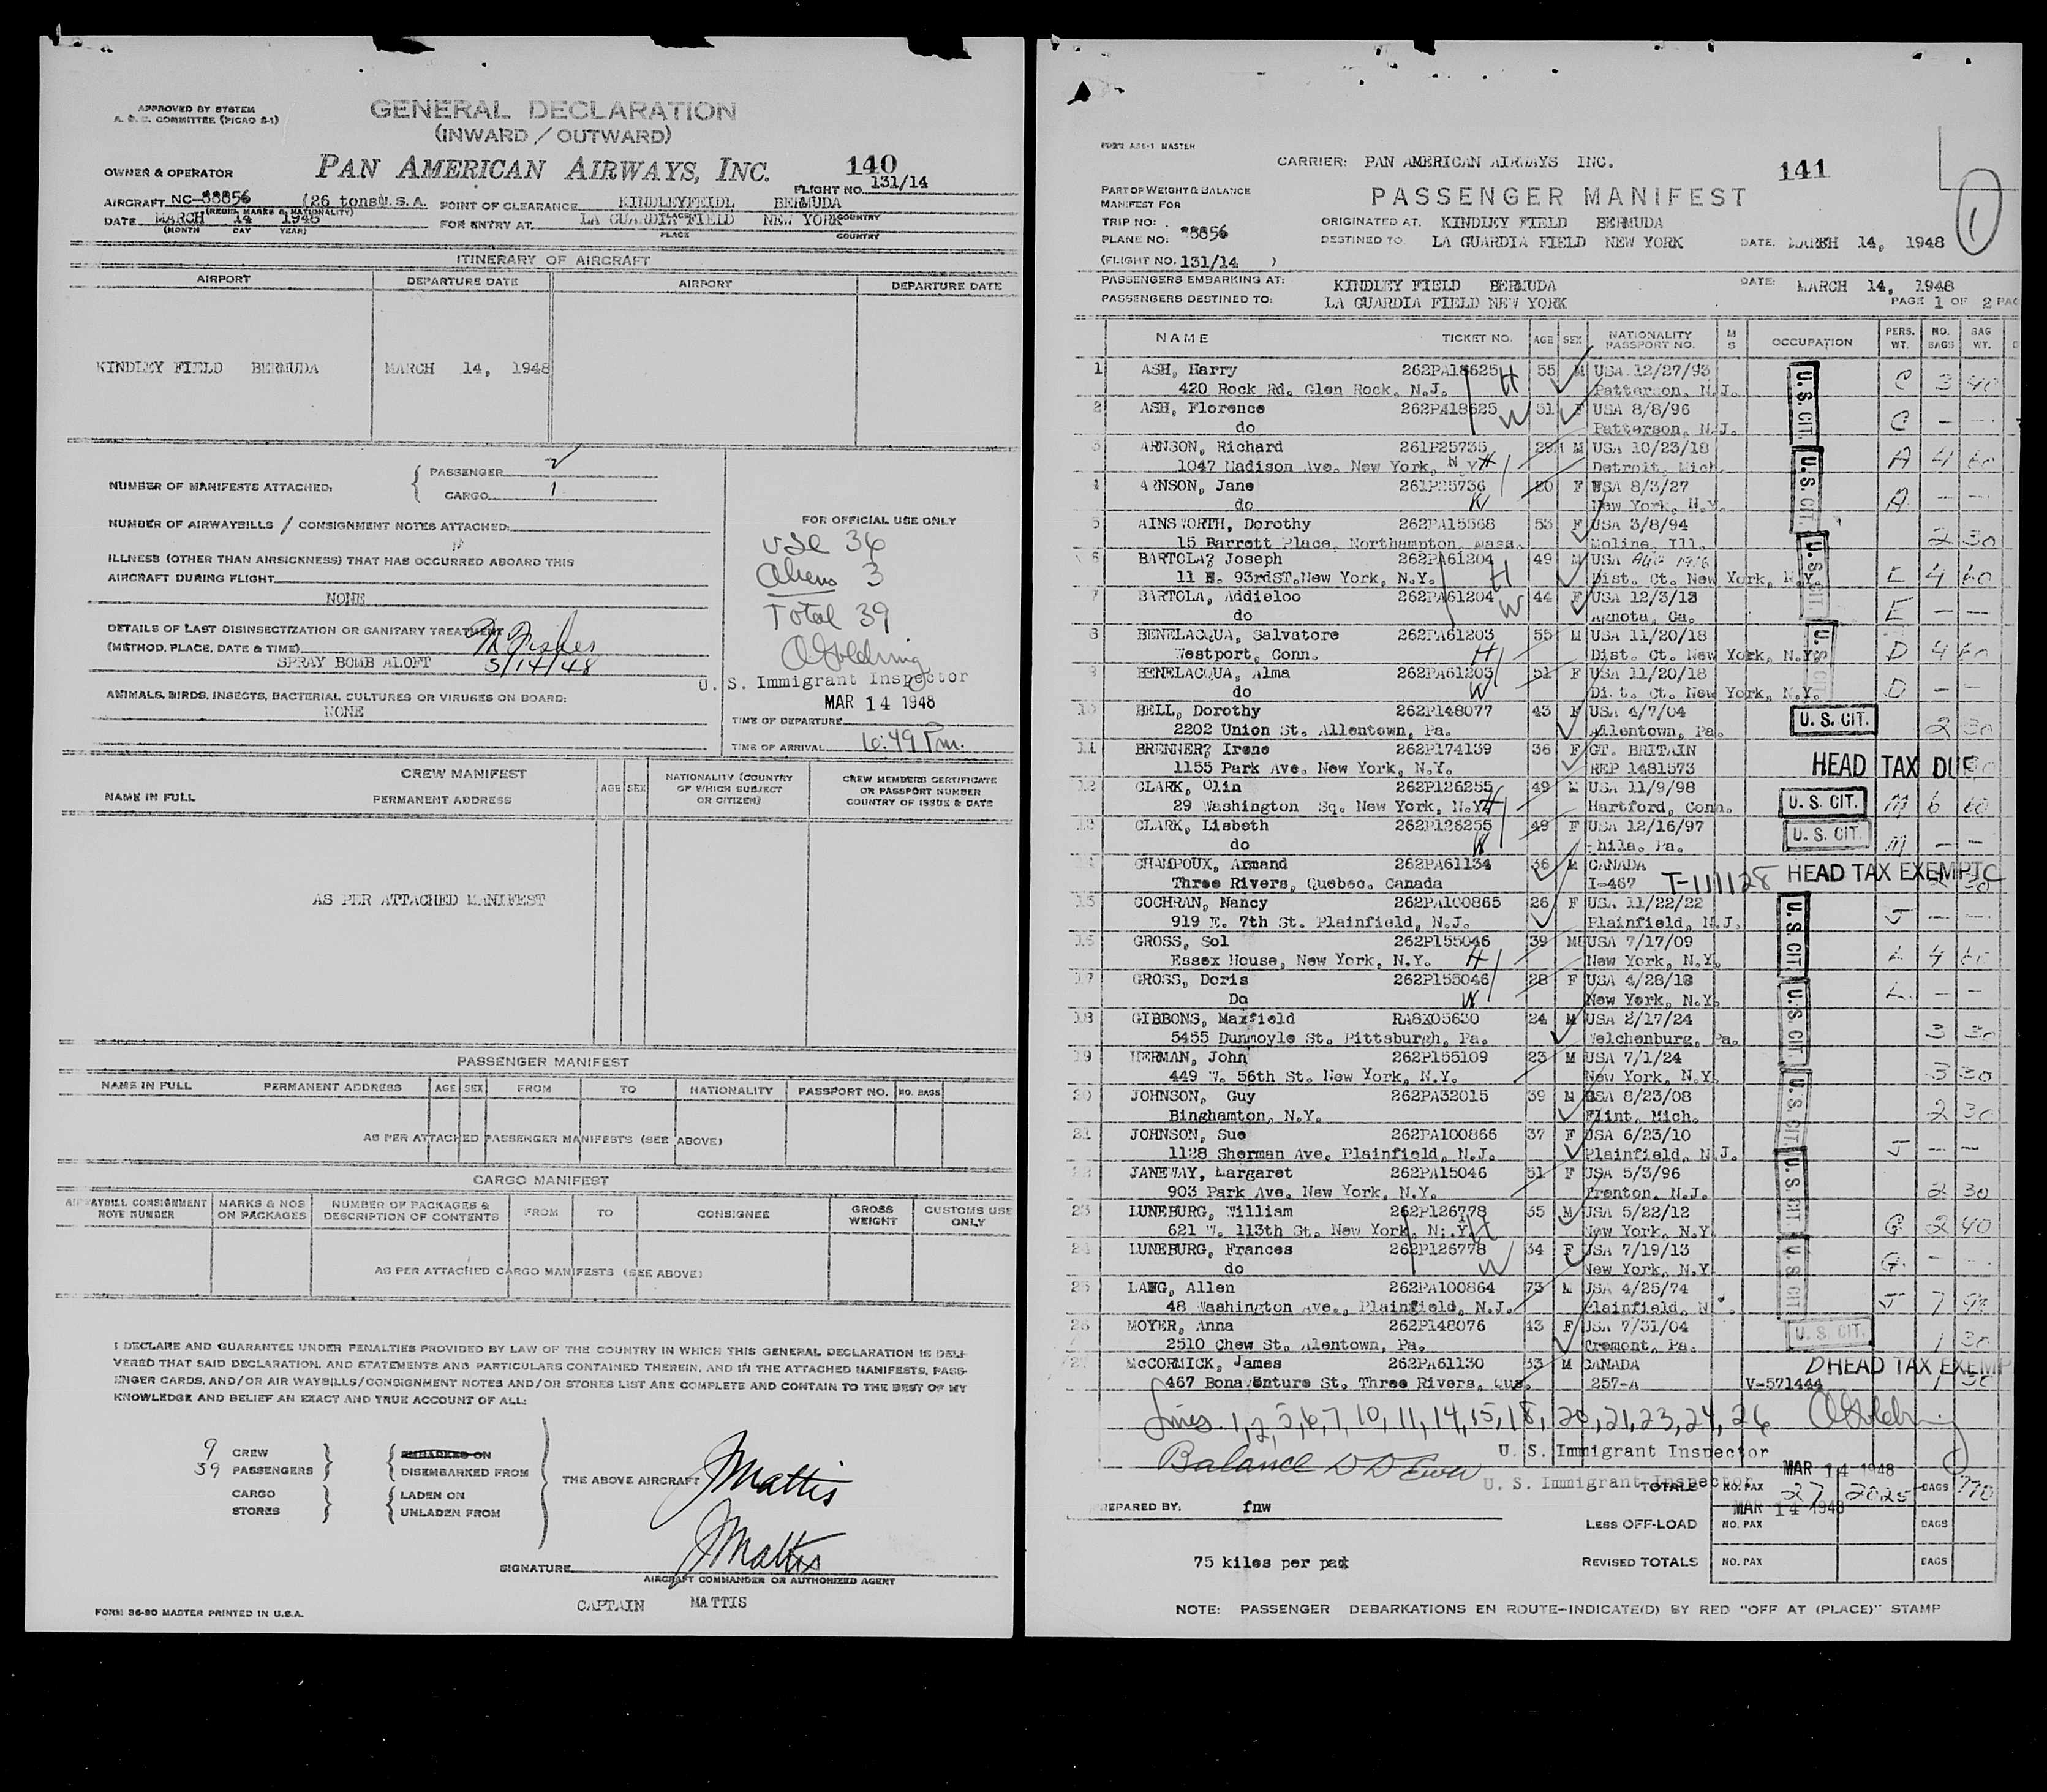 APPROVED BY SYSTEM
A. O. C. COMMITTEE (PICAO S-1)
GENERAL DECLARATION
(INWARD / OUTWARD)
OWNER & OPERATOR
PAN AMERICAN AIRWAYS, INC.
140
FLIGHT NO. 131/14
AIRCRAFT NC-88856 (26 tons U.S.A.
(REGIS. MARKS & NATIONALITY)
POINT OF CLEARANCE KINDLEYFEIDL BERMUDA
DATE MARCH 14 1948
(MONTH DAY YEAR)
FOR ENTRY AT LA GUARDIA FIELD NEW YORK
PLACE COUNTRY
ITINERARY OF AIRCRAFT
AIRPORT DEPARTURE DATE AIRPORT DEPARTURE DATE
KINDLEY FIELD BERMUDA MARCH 14, 1948
NUMBER OF MANIFESTS ATTACHED:
PASSENGER 2
CARGO 1
NUMBER OF AIRWAYBILLS / CONSIGNMENT NOTES ATTACHED:
ILLNESS (OTHER THAN AIRSICKNESS) THAT HAS OCCURRED ABOARD THIS
AIRCRAFT DURING FLIGHT
NONE
DETAILS OF LAST DISINSECTIZATION OR SANITARY TREATMENT
(METHOD, PLACE, DATE & TIME)
SPRAY BOMB ALOFT 3/14/48
ANIMALS, BIRDS, INSECTS, BACTERIAL CULTURES OR VIRUSES ON BOARD:
NONE
FOR OFFICIAL USE ONLY
USC 36
Aliens 3
Total 39
U. S. Immigrant Inspector
MAR 14 1948
TIME OF DEPARTURE
TIME OF ARRIVAL 6:49 Pm.
CREW MANIFEST
NAME IN FULL PERMANENT ADDRESS AGE SEX NATIONALITY (COUNTRY OF WHICH SUBJECT OR CITIZEN) CREW MEMBERS CERTIFICATE OR PASSPORT NUMBER COUNTRY OF ISSUE & DATE
AS PER ATTACHED MANIFEST
PASSENGER MANIFEST
NAME IN FULL PERMANENT ADDRESS AGE SEX FROM TO NATIONALITY PASSPORT NO. NO. BAGS
AS PER ATTACHED PASSENGER MANIFESTS (SEE ABOVE)
CARGO MANIFEST
AIRWAYBILL CONSIGNMENT NOTE NUMBER MARKS & NOS ON PACKAGES NUMBER OF PACKAGES & DESCRIPTION OF CONTENTS FROM TO CONSIGNEE GROSS WEIGHT CUSTOMS USE ONLY
AS PER ATTACHED CARGO MANIFESTS (SEE ABOVE)
I DECLARE AND GUARANTEE UNDER PENALTIES PROVIDED BY LAW OF THE COUNTRY IN WHICH THIS GENERAL DECLARATION IS DELI-
VERED THAT SAID DECLARATION, AND STATEMENTS AND PARTICULARS CONTAINED THEREIN, AND IN THE ATTACHED MANIFESTS, PASS-
ENGER CARDS, AND/OR AIR WAYBILLS/CONSIGNMENT NOTES AND/OR STORES LIST ARE COMPLETE AND CONTAIN TO THE BEST OF MY
KNOWLEDGE AND BELIEF AN EXACT AND TRUE ACCOUNT OF ALL:
9 CREW
39 PASSENGERS
CARGO
STORES
EMBARKED ON
DISEMBARKED FROM
LADEN ON
UNLADEN FROM
THE ABOVE AIRCRAFT JMattis
SIGNATURE JMattis
AIRCRAFT COMMANDER OR AUTHORIZED AGENT
CAPTAIN MATTIS
FORM 36-80 MASTER PRINTED IN U.S.A.
CARRIER: PAN AMERICAN AIRWAYS INC.
141
1
PART OF WEIGHT & BALANCE
MANIFEST FOR
PASSENGER MANIFEST
TRIP NO:
ORIGINATED AT. KINDLEY FIELD BERMUDA
PLANE NO: 88856
DESTINED TO LA GUARDIA FIELD NEW YORK DATE. MARCH 14, 1948
(FLIGHT NO. 131/14 )
PASSENGERS EMBARKING AT: KINDLEY FIELD BERMUDA DATE: MARCH 14, 1948
PASSENGERS DESTINED TO: LA GUARDIA FIELD NEW YORK
PAGE 1 OF 2 PAG
NAME TICKET NO. AGE SEX NATIONALITY PASSPORT NO. M S OCCUPATION PERS. WT. NO. BAGS BAG WT.
1 ASH, Harry 262PA18625 H 55 M USA 12/27/93 U.S. CIT. C 3 40
420 Rock Rd. Glen Rock, N.J. Patterson, N.J.
2 ASH, Florence 262PA18625 W 51 F USA 8/8/96 C - -
do Patterson, N.J.
3 ARNSON, Richard 261P25735 29 M USA 10/23/18 U.S. CIT. A 4 60
1047 Madison Ave. New York, N.Y. H Detroit, Mich.
4 ARNSON, Jane 261P25736 20 F USA 8/3/27 A - -
do W New York, N.Y.
5 AINSWORTH, Dorothy 262PA15568 53 F USA 3/8/94 2 30
15 Barrett Place, Northampton, Mass. Moline, Ill.
6 BARTOLA, Joseph 262PA61204 49 M USA U.S. CIT. E 4 60
11 E. 93rdST. New York, N.Y. H Dist. Ct. New York, N.Y.
7 BARTOLA, Addieloo 262PA61204 W 44 F USA 12/3/13 E - -
do Ga.
8 BENELACQUA, Salvatore 262PA61203 55 M USA 11/20/18 U.S. CIT. D 4 60
Westport, Conn. H Dist. Ct. New York, N.Y.
9 BENELACQUA, Alma 262PA61203 51 F USA 11/20/18 D - -
do W Dist. Ct. New York, N.Y.
10 BELL, Dorothy 262P148077 43 F USA 4/7/04 U. S. CIT. 2 30
2202 Union St. Allentown, Pa. Allentown, Pa.
11 BRENNER, Irene 262P174139 36 F GT. BRITAIN HEAD TAX DUE
1155 Park Ave. New York, N.Y. REP 1481573
12 CLARK, Olin 262P126255 49 M USA 11/9/98 U. S. CIT. M 6 60
29 Washington Sq. New York, N.Y. H Hartford, Conn.
13 CLARK, Lisbeth 262P126255 49 F USA 12/16/97 U. S. CIT. M - -
do W Phila. Pa.
14 CHAMPOUX, Armand 262PA61134 36 M CANADA HEAD TAX EXEMPT
Three Rivers, Quebec. Canada I-467 T-111128
15 COCHRAN, Nancy 262PA100865 26 F USA 11/22/22 U.S. CIT. J - -
919 E. 7th St. Plainfield, N.J. Plainfield, N.J.
16 GROSS, Sol 262P155046 39 M USA 7/17/09 L 4 60
Essex House, New York, N.Y. H New York, N.Y.
17 GROSS, Doris 262P155046 28 F USA 4/28/18 U.S. CIT. L - -
Do W New York, N.Y.
18 GIBBONS, Maxfield RA8X05630 24 M USA 2/17/24 3 30
5455 Dunmoyle St. Pittsburgh, Pa. Welchenburg, Pa.
19 HERMAN, John 262P155109 23 M USA 7/1/24 3 30
449 W. 56th St. New York, N.Y. New York, N.Y.
20 JOHNSON, Guy 262PA32015 39 M USA 8/23/08 U.S. CIT. 2 30
Binghamton, N.Y. Flint, Mich.
21 JOHNSON, Sue 262PA100866 37 F USA 6/23/10 J - -
1128 Sherman Ave. Plainfield, N.J. Plainfield, N.J.
22 JANEWAY, Margaret 262PA15046 51 F USA 5/3/96 U.S. CIT. 2 30
903 Park Ave. New York, N.Y. Trenton, N.J.
23 LUNEBURG, William 262P126778 35 M USA 5/22/12 G 2 40
621 W. 113th St. New York, N.Y. H New York, N.Y.
24 LUNEBURG, Frances 262P126778 34 F USA 7/19/13 U.S. CIT. G - -
do W New York, N.Y
25 LANG, Allen 262PA100864 73 M USA 4/25/74 J 7
48 Washington Ave., Plainfield, N.J. Plainfield, N
26 MOYER, Anna 262P148076 43 F USA 7/31/04 U. S. CIT. 1 30
2510 Chew St. Alentown, Pa. Tremont, Pa.
27 McCORMICK, James 262PA61130 33 M CANADA HEAD TAX EXEMP
467 Bonaventure St. Three Rivers, Que. 257-A V-571444 1 30
Lines 1, 2, 5, 6, 7, 10, 11, 14, 15, 18, 20, 21, 23, 24, 26
U. S. Immigrant Inspector
Balance
MAR 14 1948
U. S. Immigrant Inspector
TOTALS NO. PAX 27 2025 BAGS 770
MAR 14 1948
PREPARED BY: fnw
LESS OFF-LOAD NO. PAX BAGS
75 kilos per pax
REVISED TOTALS NO. PAX BAGS
NOTE: PASSENGER DEBARKATIONS EN ROUTE-INDICATE(D) BY RED "OFF AT (PLACE)" STAMP